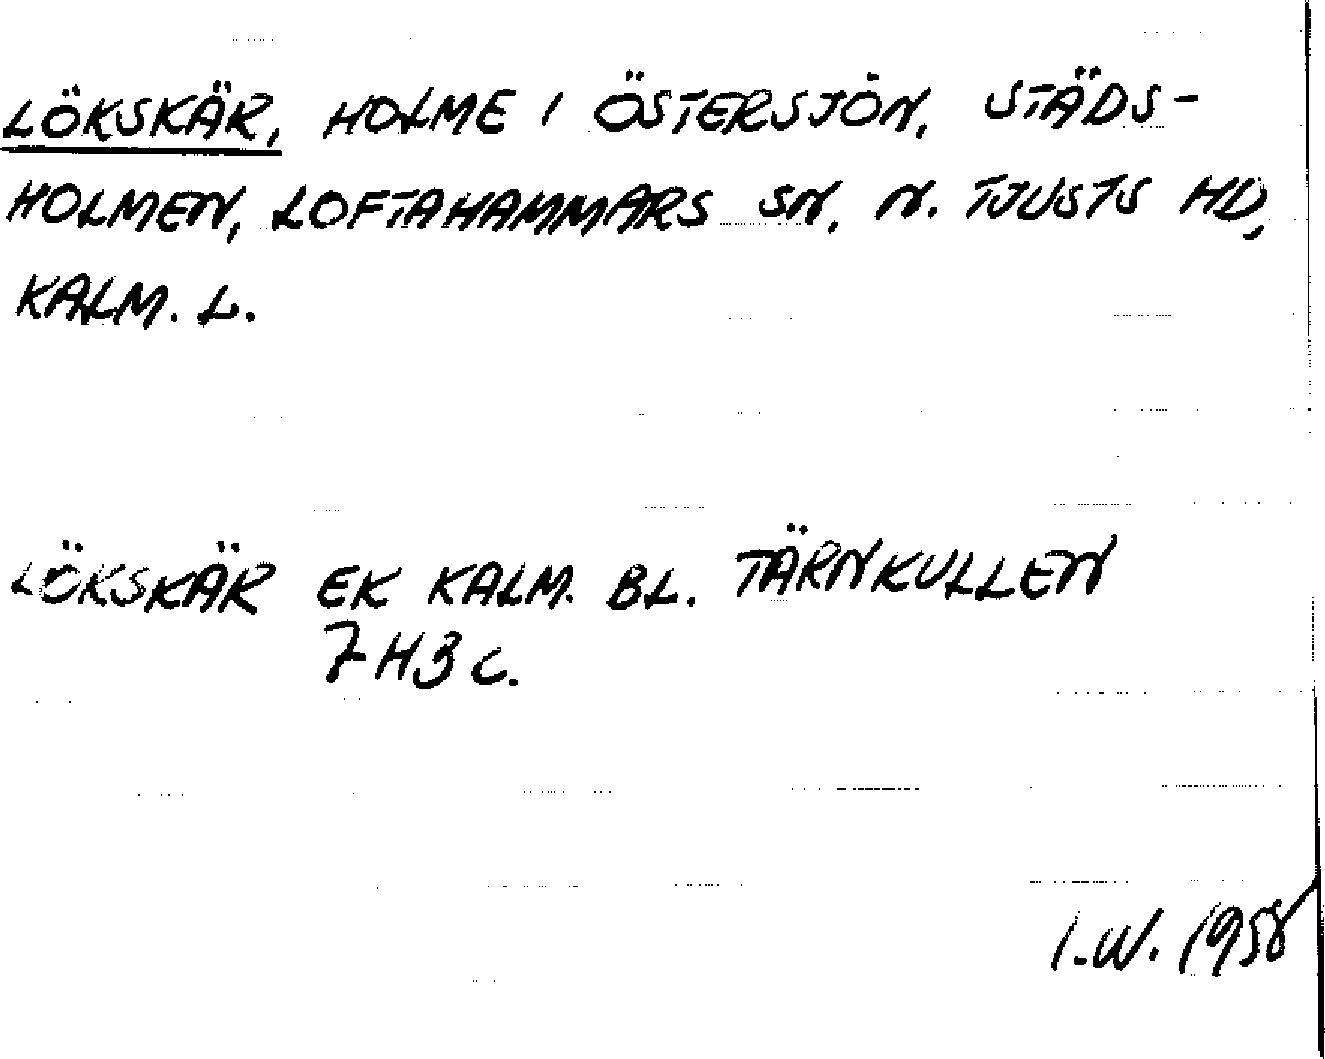 LÖKSKÄR, HOLME I ÖSTERSJÖN, STÄDS-
HOLMEN, LOFTAHAMMARS SN, N. TJUSTS HD,
KALM. L.
LÖKSKÄR EK KALM. BL. TÄRNKULLEN
7H3c.
I.W. 1958